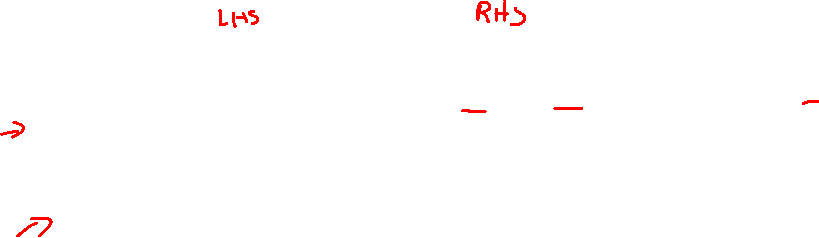 LHS RHS